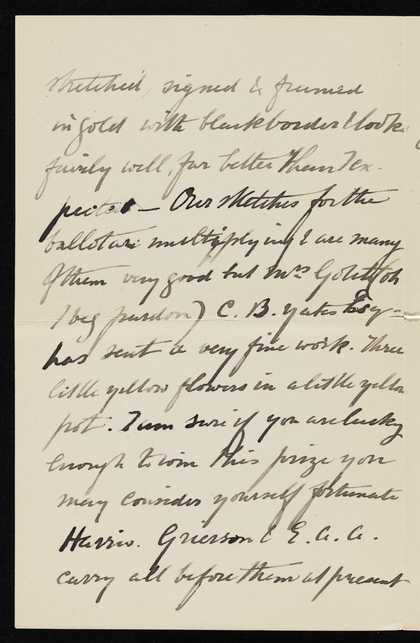 stretched, signed & framed
in gold with black border & looks
fairly well, far better than I ex-
pected — Our sketches for the
ballot are multiplying & are many
of them very good but Mrs (oh
I beg pardon) C. B. Yates Esq—
has sent a very fine work. Three
little yellow flowers in a little yellow
pot. I am sure if you are lucky
enough to win this prize you
may consider yourself fortunate
Harris. Grierson & E. A. A.
carry all before them at present